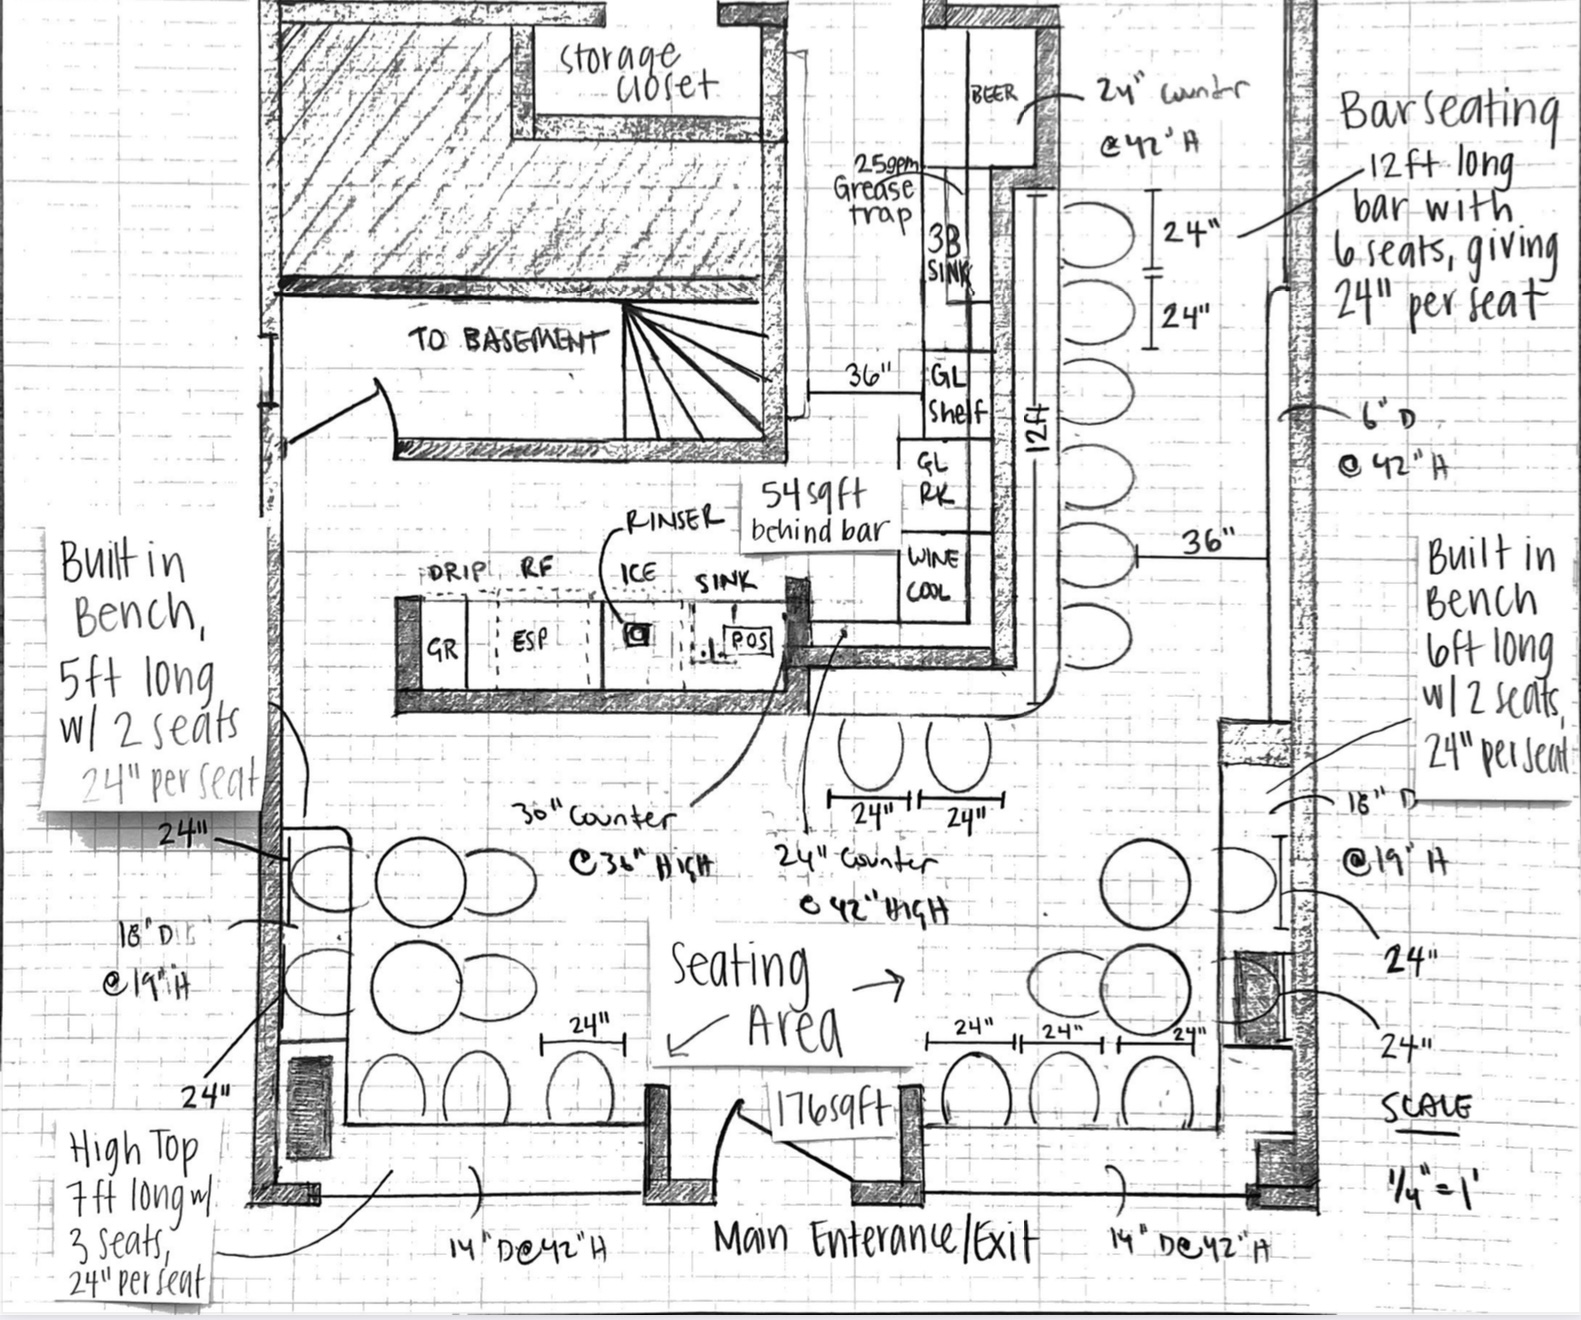 storage
closet
BEER
24" Counter
@ 42" H
Bar seating
12ft long
bar with
6 seats, giving
24" per seat
25gpm
Grease
trap
3B
SINK
24"
24"
TO BASEMENT
36"
GL
Shelf
12ft
6" D
@ 42" H
GL
RK
54 sqft
behind bar
RINSER
WINE
COOL
36"
DRIP
RF
ICE
SINK
GR
ESP
POS
Built in
Bench,
5ft long
w/ 2 seats
24" per seat
Built in
Bench
6ft long
w/ 2 seats,
24" per seat
24"
24"
30" Counter
@ 36" HIGH
24" Counter
@ 42" HIGH
24"
18" D
@ 19" H
18" D
@ 19" H
24"
24"
24"
Seating
Area
176 sqft
24"
24"
24"
24"
SCALE
1/4" = 1'
High Top
7ft long w/
3 seats,
24" per seat
14" D@42" H
Main Enterance/Exit
14" D@42" H